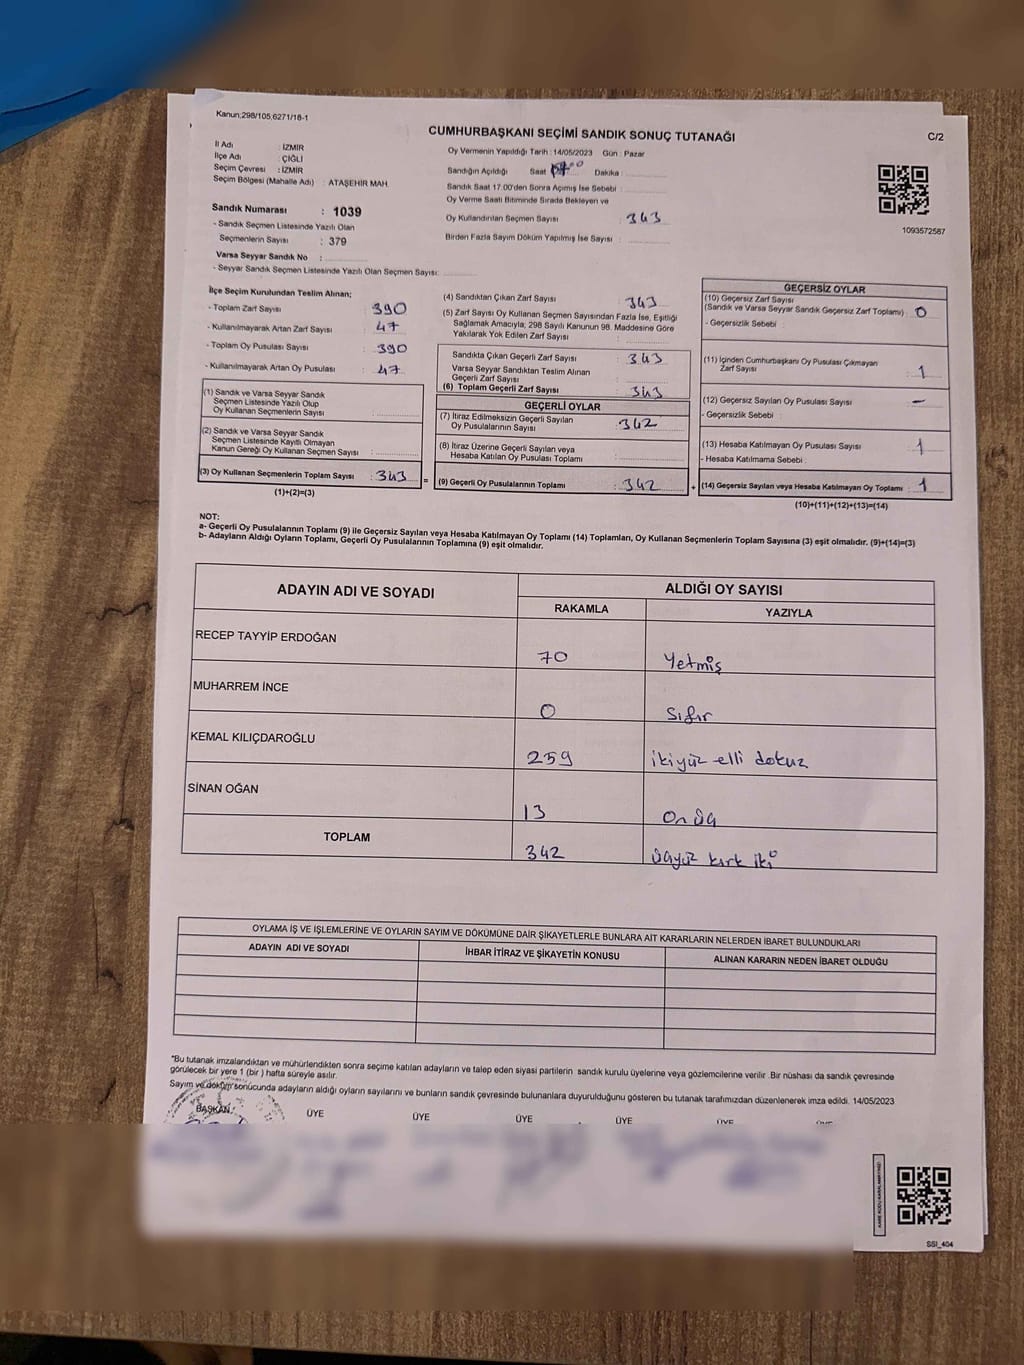 Kanun;298/105,6271/18-1
CUMHURBAŞKANI SEÇİMİ SANDIK SONUÇ TUTANAĞI
C/2
İl Adı : İZMİR
İlçe Adı : ÇİĞLİ
Seçim Çevresi : İZMİR
Seçim Bölgesi (Mahalle Adı) : ATAŞEHİR MAH.
Oy Vermenin Yapıldığı Tarih : 14/05/2023 Gün : Pazar
Sandığın Açıldığı Saat Dakika :
Sandık Saat 17.00'den Sonra Açımış İse Sebebi :
Oy Verme Saati Bitiminde Sırada Bekleyen ve
Oy Kullandırılan Seçmen Sayısı : 343
Birden Fazla Sayım Döküm Yapılmış İse Sayısı :
1093572587
Sandık Numarası : 1039
- Sandık Seçmen Listesinde Yazılı Olan
Seçmenlerin Sayısı : 379
Varsa Seyyar Sandık No :
- Seyyar Sandık Seçmen Listesinde Yazılı Olan Seçmen Sayısı:
İlçe Seçim Kurulundan Teslim Alınan;
- Toplam Zarf Sayısı : 390
- Kullanılmayarak Artan Zarf Sayısı : 47
- Toplam Oy Pusulası Sayısı : 390
- Kullanılmayarak Artan Oy Pusulası : 47
(1) Sandık ve Varsa Seyyar Sandık
Seçmen Listesinde Yazılı Olup
Oy Kullanan Seçmenlerin Sayısı :
(2) Sandık ve Varsa Seyyar Sandık
Seçmen Listesinde Kayıtlı Olmayan
Kanun Gereği Oy Kullanan Seçmen Sayısı :
(3) Oy Kullanan Seçmenlerin Toplam Sayısı : 343
(1)+(2)=(3)
(4) Sandıktan Çıkan Zarf Sayısı : 343
(5) Zarf Sayısı Oy Kullanan Seçmen Sayısından Fazla İse, Eşitliği
Sağlamak Amacıyla; 298 Sayılı Kanunun 98. Maddesine Göre
Yakılarak Yok Edilen Zarf Sayısı :
Sandıkta Çıkan Geçerli Zarf Sayısı : 343
Varsa Seyyar Sandıktan Teslim Alınan
Geçerli Zarf Sayısı :
(6) Toplam Geçerli Zarf Sayısı : 343
GEÇERLİ OYLAR
(7) İtiraz Edilmeksizin Geçerli Sayılan
Oy Pusulalarının Sayısı : 342
(8) İtiraz Üzerine Geçerli Sayılan veya
Hesaba Katılan Oy Pusulası Toplamı :
= (9) Geçerli Oy Pusulalarının Toplamı : 342
GEÇERSİZ OYLAR
(10) Geçersiz Zarf Sayısı
(Sandık ve Varsa Seyyar Sandık Geçersiz Zarf Toplamı) : 0
- Geçersizlik Sebebi :
(11) İçinden Cumhurbaşkanı Oy Pusulası Çıkmayan
Zarf Sayısı : 1
(12) Geçersiz Sayılan Oy Pusulası Sayısı : -
- Geçersizlik Sebebi :
(13) Hesaba Katılmayan Oy Pusulası Sayısı : 1
- Hesaba Katılmama Sebebi :
+ (14) Geçersiz Sayılan veya Hesaba Katılmayan Oy Toplamı : 1
(10)+(11)+(12)+(13)=(14)
NOT:
a- Geçerli Oy Pusulalarının Toplamı (9) ile Geçersiz Sayılan veya Hesaba Katılmayan Oy Toplamı (14) Toplamları, Oy Kullanan Seçmenlerin Toplam Sayısına (3) eşit olmalıdır. (9)+(14)=(3)
b- Adayların Aldığı Oyların Toplamı, Geçerli Oy Pusulalarının Toplamına (9) eşit olmalıdır.
ADAYIN ADI VE SOYADI
ALDIĞI OY SAYISI
RAKAMLA YAZIYLA
RECEP TAYYİP ERDOĞAN 70 Yetmiş
MUHARREM İNCE 0 Sıfır
KEMAL KILIÇDAROĞLU 259 ikiyüz elli dokuz
SİNAN OĞAN 13 Onüç
TOPLAM 342 üçyüz kırk iki
OYLAMA İŞ VE İŞLEMLERİNE VE OYLARIN SAYIM VE DÖKÜMÜNE DAİR ŞİKAYETLERLE BUNLARA AİT KARARLARIN NELERDEN İBARET BULUNDUKLARI
ADAYIN ADI VE SOYADI İHBAR İTİRAZ VE ŞİKAYETİN KONUSU ALINAN KARARIN NEDEN İBARET OLDUĞU
*Bu tutanak imzalandıktan ve mühürlendikten sonra seçime katılan adayların ve talep eden siyasi partilerin sandık kurulu üyelerine veya gözlemcilerine verilir .Bir nüshası da sandık çevresinde
görülecek bir yere 1 (bir ) hafta süreyle asılır.
Sayım ve döküm sonucunda adayların aldığı oyların sayılarını ve bunların sandık çevresinde bulunanlara duyurulduğunu gösteren bu tutanak tarafımızdan düzenlenerek imza edildi. 14/05/2023
BAŞKAN ÜYE ÜYE ÜYE ÜYE ÜYE
SSI_404